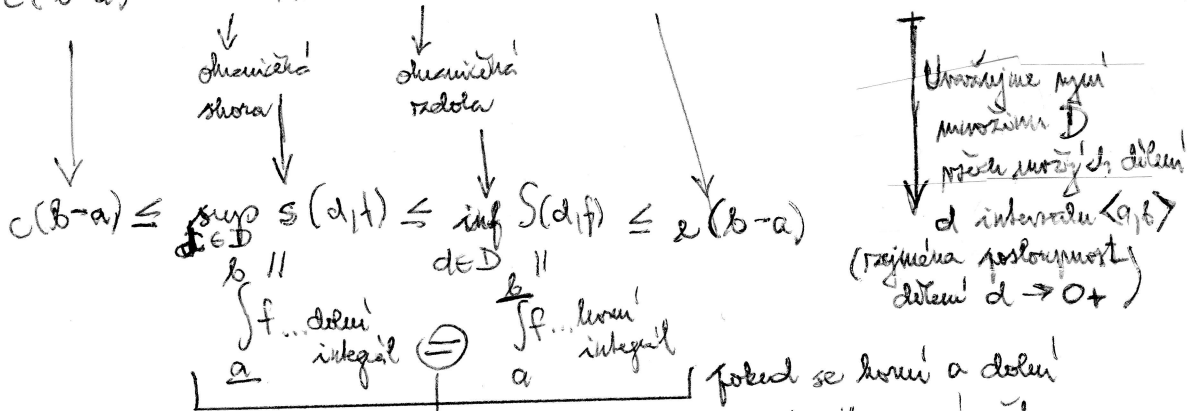 ohraničená
shora
ohraničená
zdola
Uvažujme nyní
množinu D
všech možných dělení
d intervalu <a,b>
(zejména posloupnost
dělení d → 0+)
c(b-a) ≤ sup s(d,f) ≤ inf S(d,f) ≤ e(b-a)
d∈D d∈D
b || b ||
∫f...dolní ∫f...horní
integrál = integrál
a a
pokud se horní a dolní